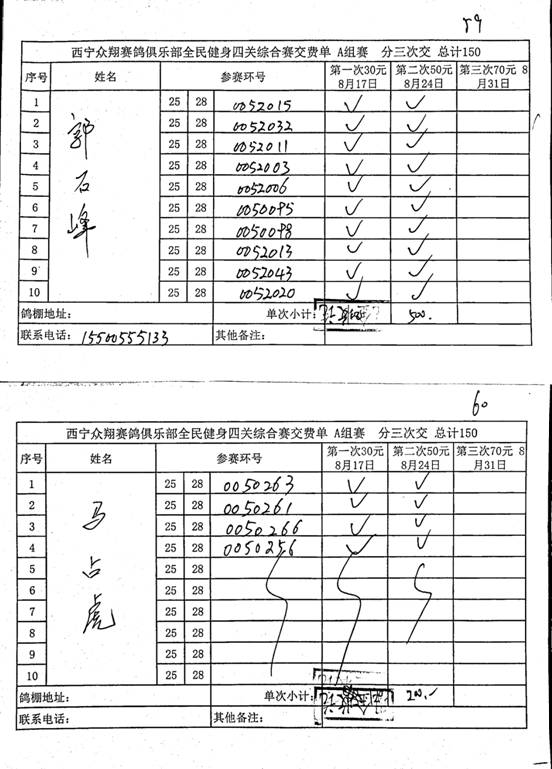 59
西宁众翔赛鸽俱乐部全民健身四关综合赛交费单 A组赛 分三次交 总计150
序号 姓名 参赛环号 第一次30元 8月17日 第二次50元 8月24日 第三次70元 8月31日
郭石峰
1 25 28 0052015 ✓ ✓
2 25 28 0052032 ✓ ✓
3 25 28 0052011 ✓ ✓
4 25 28 0052003 ✓ ✓
5 25 28 0052006 ✓ ✓
6 25 28 0050095 ✓ ✓
7 25 28 0050098 ✓ ✓
8 25 28 0052013 ✓ ✓
9 25 28 0052043 ✓ ✓
10 25 28 0052020 ✓ ✓
鸽棚地址: 单次小计: 500.
联系电话: 15500555133 其他备注:
60
西宁众翔赛鸽俱乐部全民健身四关综合赛交费单 A组赛 分三次交 总计150
序号 姓名 参赛环号 第一次30元 8月17日 第二次50元 8月24日 第三次70元 8月31日
马占虎
1 25 28 0050263 ✓ ✓
2 25 28 0050261 ✓ ✓
3 25 28 0050266 ✓ ✓
4 25 28 0050256 ✓ ✓
5 25 28
6 25 28
7 25 28
8 25 28
9 25 28
10 25 28
鸽棚地址: 单次小计: 200.-
联系电话: 其他备注: